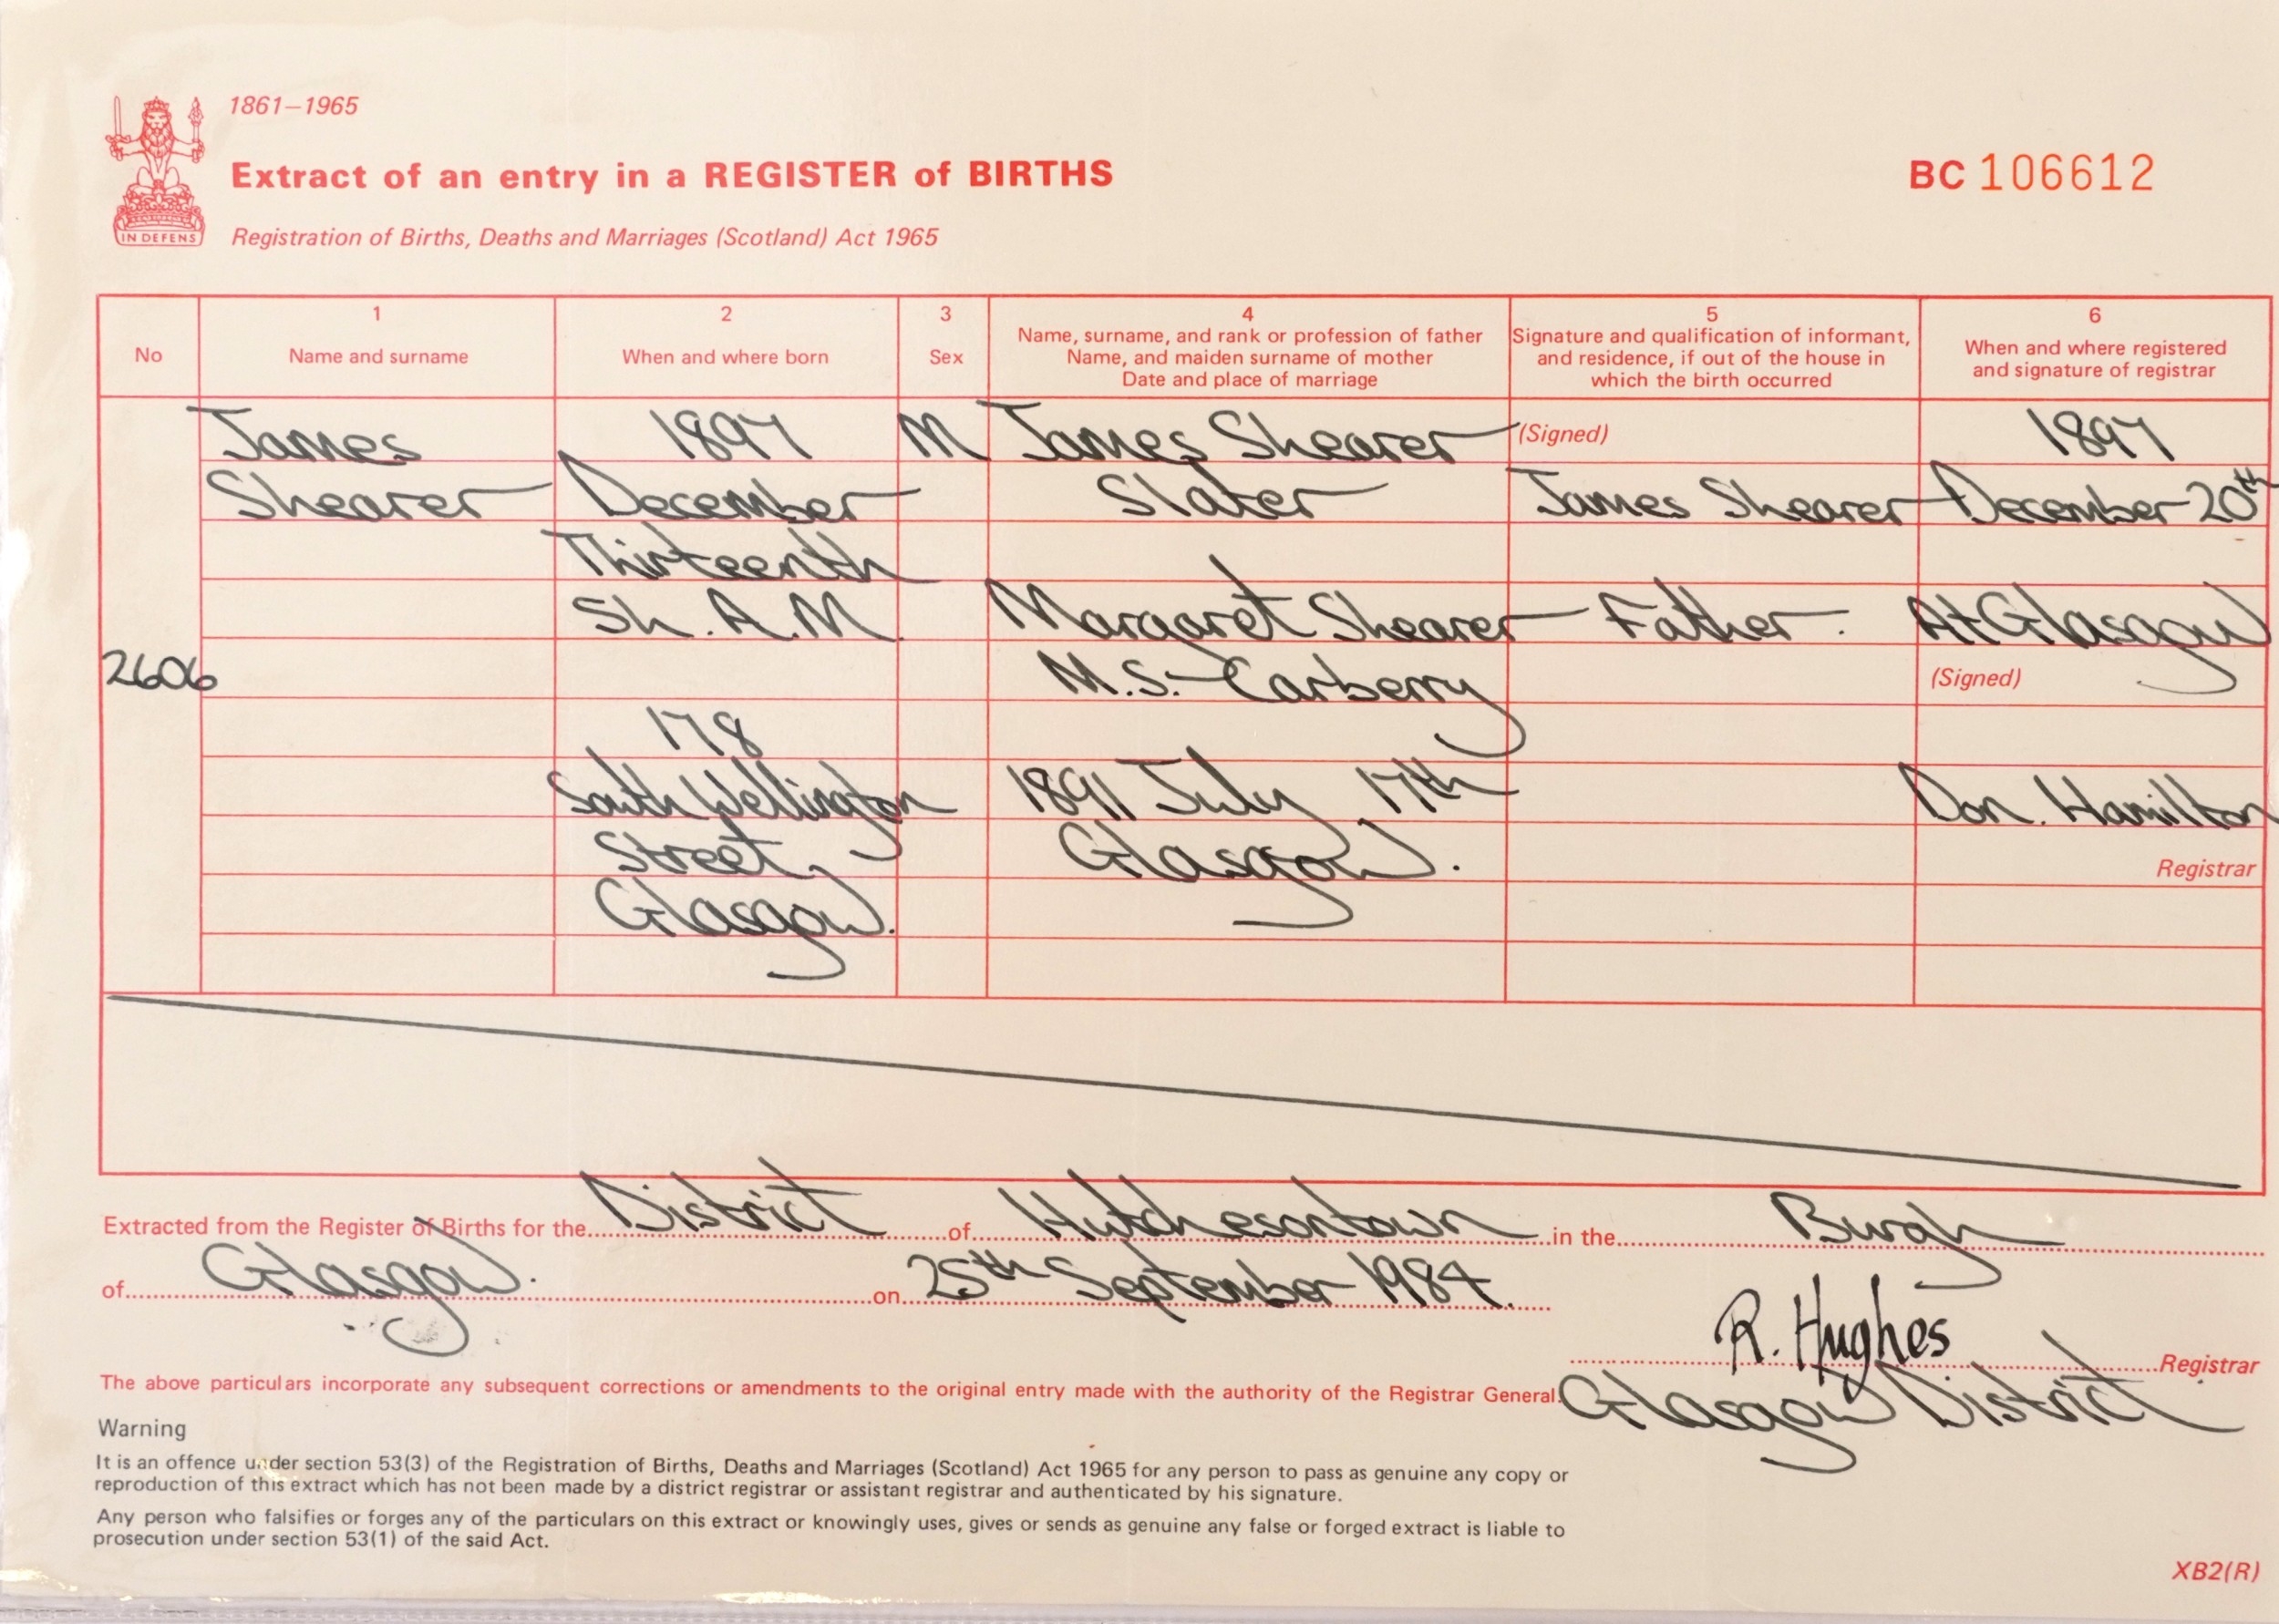 1861–1965
Extract of an entry in a REGISTER of BIRTHS
BC 106612
IN DEFENS
Registration of Births, Deaths and Marriages (Scotland) Act 1965
No
1
Name and surname
2
When and where born
3
Sex
4
Name, surname, and rank or profession of father
Name, and maiden surname of mother
Date and place of marriage
5
Signature and qualification of informant,
and residence, if out of the house in
which the birth occurred
6
When and where registered
and signature of registrar
2606
James
Shearer
1897
December
Thirteenth
5h. A.M.
178
South Wellington
Street,
Glasgow.
M
James Shearer
Slater
Margaret Shearer
M.S. Carberry
1891 July 17th
Glasgow.
(Signed)
James Shearer
Father.
1897
December 20th
At Glasgow
(Signed)
Don. Hamilton
Registrar
Extracted from the Register of Births for the District of Hutchesontown in the Burgh
of Glasgow. on 25th September 1984.
R. Hughes Registrar
Glasgow District
The above particulars incorporate any subsequent corrections or amendments to the original entry made with the authority of the Registrar General.
Warning
It is an offence under section 53(3) of the Registration of Births, Deaths and Marriages (Scotland) Act 1965 for any person to pass as genuine any copy or
reproduction of this extract which has not been made by a district registrar or assistant registrar and authenticated by his signature.
Any person who falsifies or forges any of the particulars on this extract or knowingly uses, gives or sends as genuine any false or forged extract is liable to
prosecution under section 53(1) of the said Act.
XB2(R)